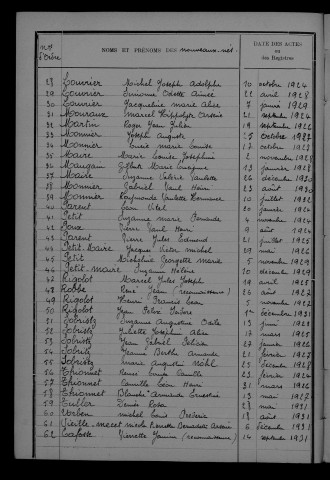 Nos d'Ordre NOMS ET PRÉNOMS DES nouveaux-nés DATE DES ACTES ou des Registres
28 Louvier Michel Joseph Adolphe 10 octobre 1924
29 Louvier Simonne Odette Aimée 22 avril 1928
30 Louvier Jacqueline marie Alice 7 janvier 1929
31 Mouraux Marcel Hippolyte Arsène 21 septembre 1924
32 Martin Roger Jean Julien 19 septembre 1922
33 Monnier Joseph Auguste 7 octobre 1922
34 Monnier Lucie marie Louise 17 octobre 1925
35 Maire Marie Louise Joséphine 2 novembre 1928
36 Maugain Gilbert Marie 13 janvier 1928
37 Maire Suzanne Valérie Paulette 26 décembre 1930
38 Monnier Gabriel Paul Henri 23 août 1930
39 Monnier Raymonde Paulette 10 juillet 1926
40 Parent Jean Vital 2 janvier 1924
41 Petit Suzanne marie Fernande 4 novembre 1924
42 Poux Pierre Paul Henri 9 août 1924
43 Parent Pierre Jules Edmond 21 juillet 1925
44 Petit-Maire Jacques Victor michel 29 mai 1926
45 Petit Micheline Georgette marie 5 novembre 1929
46 Petit-maire Suzanne Hélène 10 décembre 1929
47 Rigolot Marcel Jules Joseph 19 avril 1925
48 Robbe René Jean (reconnaissance) 26 août 1922
49 Rigolot Henri Francis Jean 5 novembre 1922
50 Rigolot Jean Félix Isidore 1er décembre 1931
51 Sobriste Suzanne Augustine 13 juin 1928
52 Sobriste Juliette Joséphine Alice 17 mars 1925
53 Sobriste Jean Gabriel 27 janvier 1926
54 Sobriste Jeanne Berthe Armande 21 février 1927
55 Sobriste Marie Augustine 25 décembre 1928
56 Thionnet René Louis Camille 23 février 1924
57 Thionnet Camille Léon Henri 31 mars 1926
58 Thionnet Blanche Armande 13 mai 1927
59 Tullor Denise Rose 28 mai 1931
60 Urben michel Louis Frédéric 18 août 1931
61 Vieille- nicole Pierrette Bernadette 6 décembre 1931
62 Lafosse Pierrette Janine (reconnaissance) 14 septembre 1931